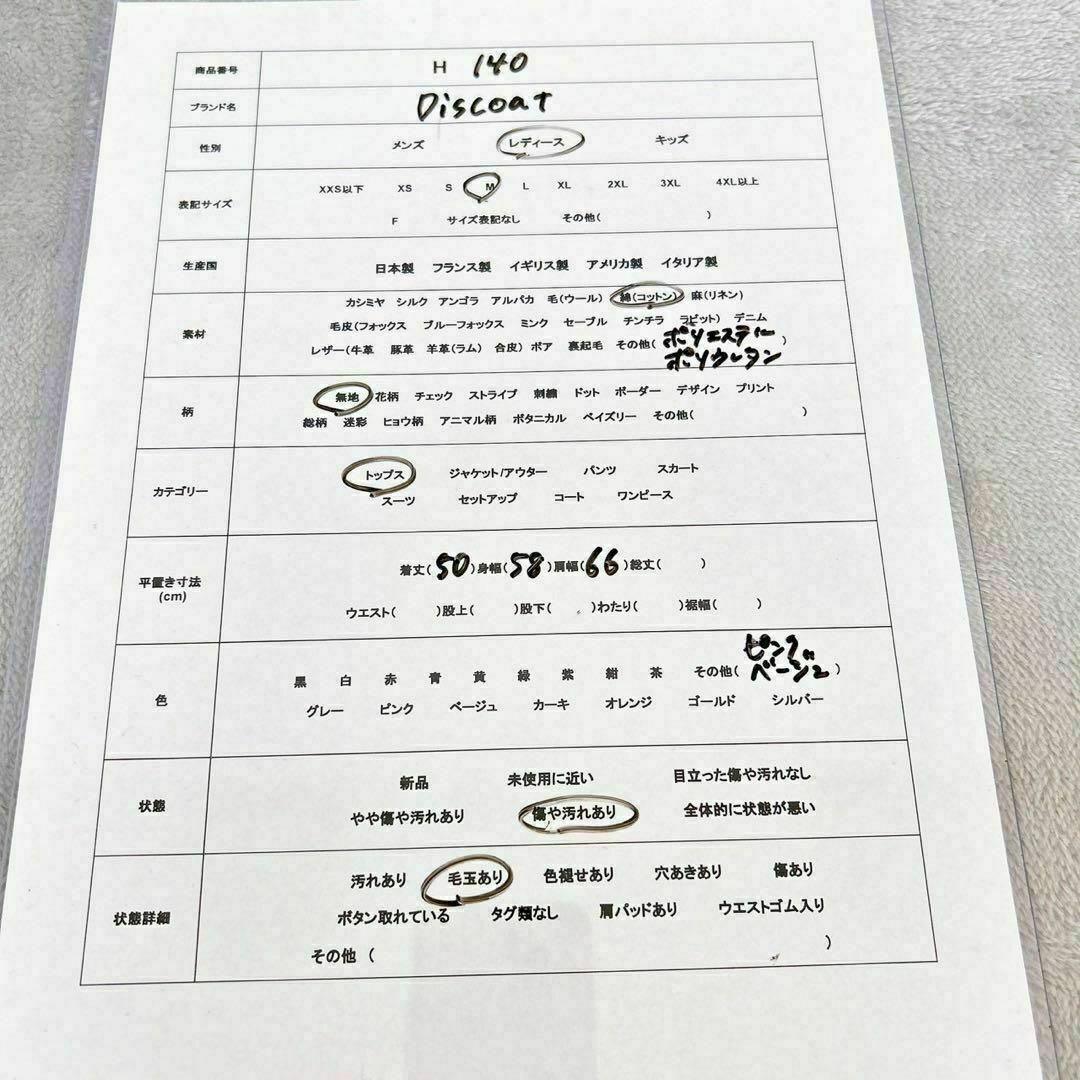 商品番号 H 140
ブランド名 Discoat
性別 メンズ レディース キッズ
表記サイズ XXS以下 XS S M L XL 2XL 3XL 4XL以上
F サイズ表記なし その他( )
生産国 日本製 フランス製 イギリス製 アメリカ製 イタリア製
素材 カシミヤ シルク アンゴラ アルパカ 毛(ウール) 綿(コットン) 麻(リネン)
毛皮(フォックス ブルーフォックス ミンク セーブル チンチラ ラビット) デニム
レザー(牛革 豚革 羊革(ラム) 合皮) ボア 裏起毛 その他( ポリエステル
ポリウレタン )
柄 無地 花柄 チェック ストライプ 刺繍 ドット ボーダー デザイン プリント
総柄 迷彩 ヒョウ柄 アニマル柄 ボタニカル ペイズリー その他( )
カテゴリー トップス ジャケット/アウター パンツ スカート
スーツ セットアップ コート ワンピース
平置き寸法
(cm) 着丈( 50 )身幅( 58 )肩幅( 66 )総丈( )
ウエスト( )股上( )股下( )わたり( )裾幅( )
色 黒 白 赤 青 黄 緑 紫 紺 茶 その他( ピンク
ベージュ )
グレー ピンク ベージュ カーキ オレンジ ゴールド シルバー
状態 新品 未使用に近い 目立った傷や汚れなし
やや傷や汚れあり 傷や汚れあり 全体的に状態が悪い
状態詳細 汚れあり 毛玉あり 色褪せあり 穴あきあり 傷あり
ボタン取れている タグ類なし 肩パッドあり ウエストゴム入り
その他 ( )